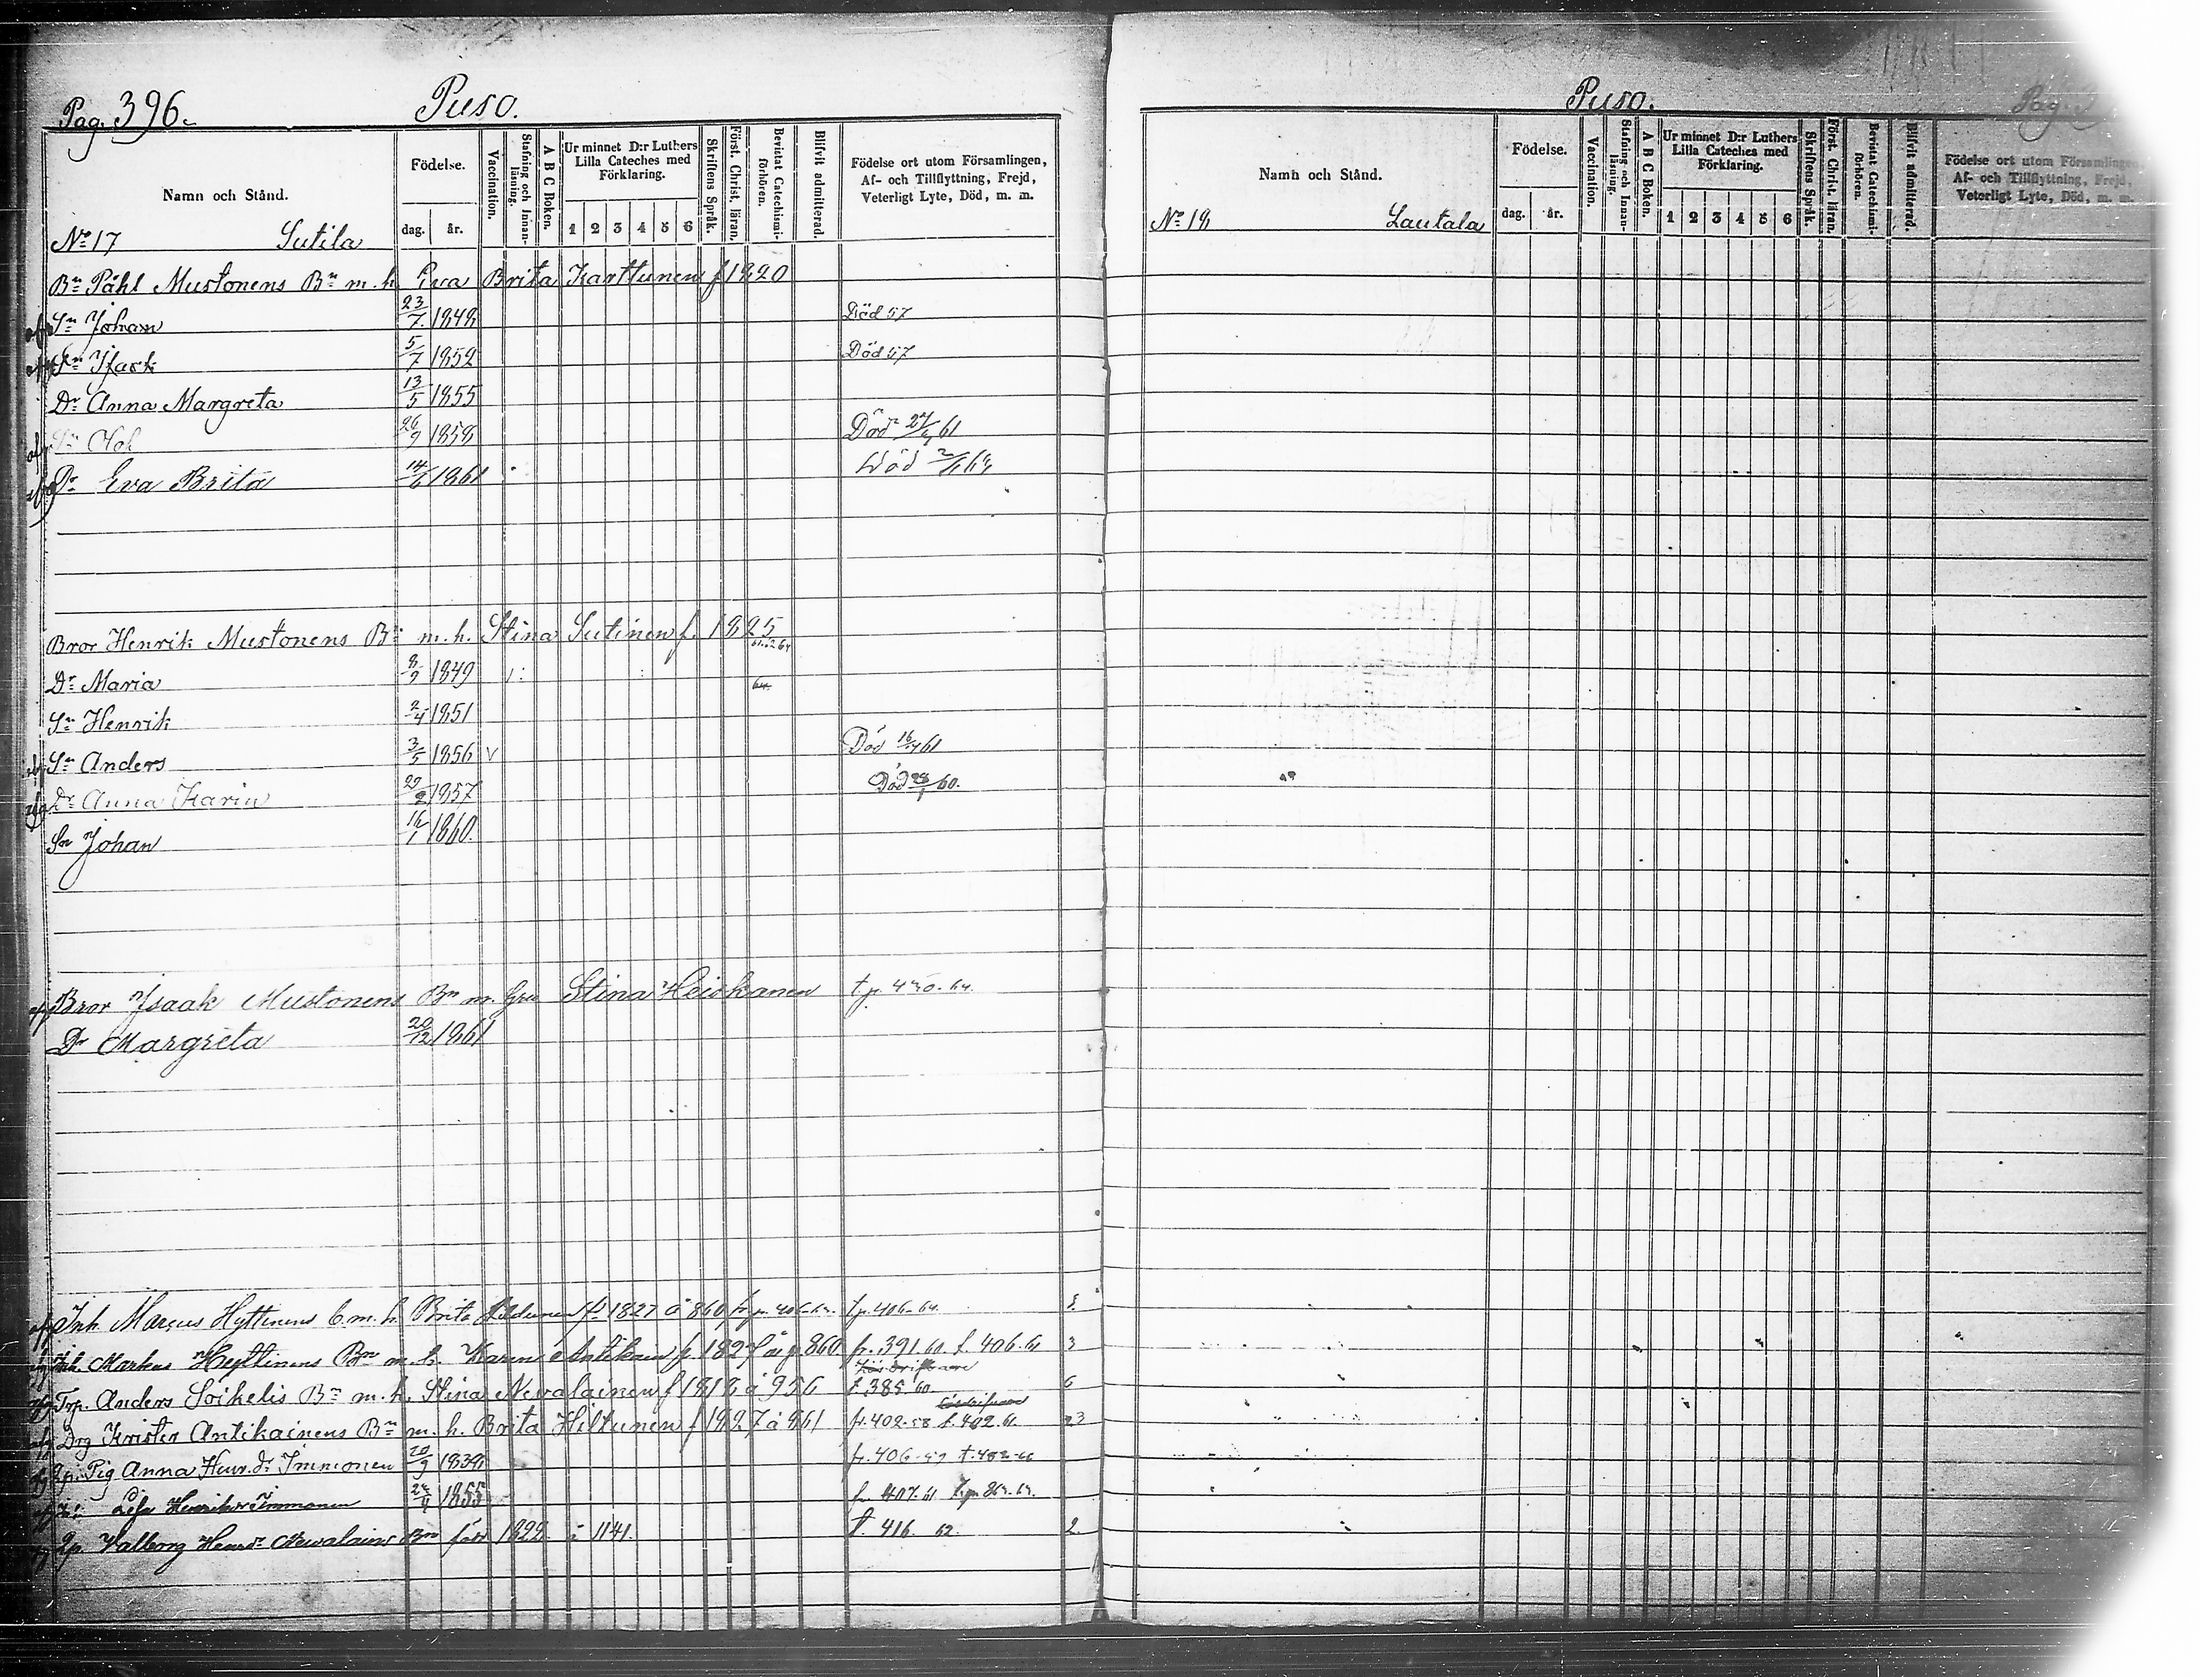 Pag. 396. Puso.
Namn och Stånd. Födelse. dag. år. Vaccination. Stafning och Innanläsning. A B C Boken. Ur minnet D:r Luthers Lilla Cateches med Förklaring. 1 2 3 4 5 6 Skriftens Språk. Först. Christ. läran. Bevistat Catechismi-förhören. Blifvit admitterad. Födelse ort utom Församlingen, Af- och Tillflyttning, Frejd, Veterligt Lyte, Död, m. m.
No 17 Sutila
Bn Påhl Mustonens Bn m. h. Eva Brita Karttunen f 1820
Sn Johan 23/7 1848 Död 57
Sn Isack 5/7 1852 Död 57
Dr Anna Margreta 13/5 1855
Sn Olof 26/9 1858 Död 61
Dr Eva Brita 14/6 1861 Död
Bror Henrik Mustonens Bn m. h. Stina Sutinen f. 1825
Dr Maria 8/9 1849
Sn Henrik 2/4 1851
Sn Anders 3/5 1856 v Död 61
Dr Anna Karin 1857 Död 60.
Sn Johan 16/1 1860.
Bror Isaak Mustonens Bn m. Stina Heiskanen
Dr Margreta 20/12 1861
Inh. Marcus Hyttinens m. h. Brita f 1827 å 860 t p. 406-64.
Inh. Markus Hyttinens Bn m. h. Karin Antikain f. 1827 860 fr. 391. 60 t. 406. 61 3
Trp. Anders Soikelis Bn m. h. Stina Nevalainen f 1818 å 956 t 385 60. 6
Drg Krister Antikainens Bn m. h. Brita Hiltunen f 1827 å 861 fr. 402-58 t. 402. 61 23
Pig Anna Henr. dr Immonen 20/9 1838 fr. 406-
Lisa Henriksr Immonen 1855 407. 61
Valborg Henrdr Nevalains Bn född 1822 å 1141. t. 416. 62. 2
Puso. Pag.
Namn och Stånd. Födelse. dag. år. Vaccination. Stafning och Innanläsning. A B C Boken. Ur minnet D:r Luthers Lilla Cateches med Förklaring. 1 2 3 4 5 6 Skriftens Språk. Först. Christ. läran. Bevistat Catechismi-förhören. Blifvit admitterad. Födelse ort utom Församlingen, Af- och Tillflyttning, Frejd, Veterligt Lyte, Död, m. m.
No 18 Lautala